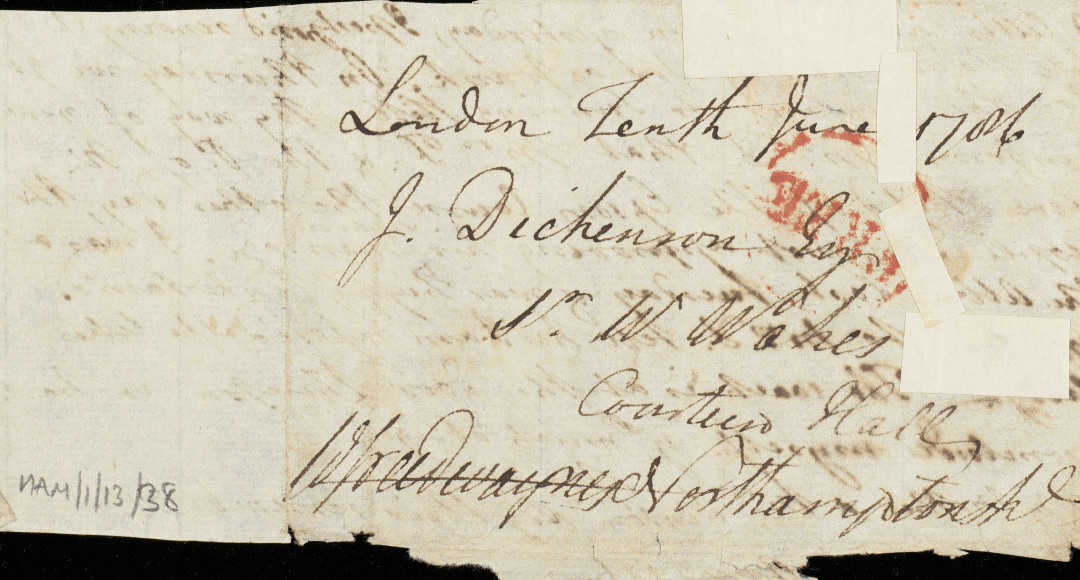 London Tenth June 1786
J. Dickenson Esqr
Sr W Wakes
Courteen Hall
Northampton
HAM/1/13/38